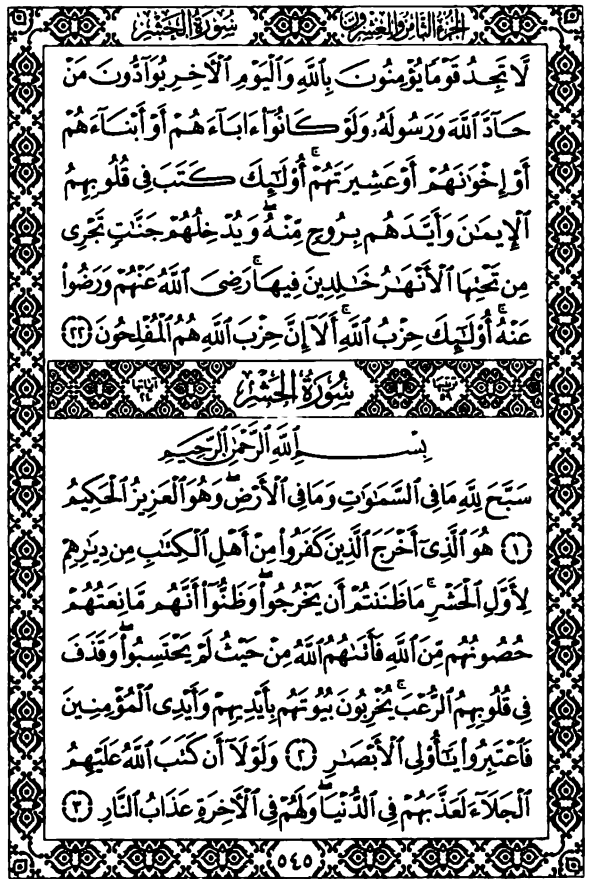 الجزء الثامن والعشرون سورة الحشر
لَّا تَجِدُ قَوْمًا يُؤْمِنُونَ بِٱللَّهِ وَٱلْيَوْمِ ٱلْأَخِرِ يُوَآدُّونَ مَنْ
حَآدَّ ٱللَّهَ وَرَسُولَهُۥ وَلَوْ كَانُوٓا۟ ءَابَآءَهُمْ أَوْ أَبْنَآءَهُمْ
أَوْ إِخْوَٰنَهُمْ أَوْ عَشِيرَتَهُمْ ۚ أُو۟لَٰٓئِكَ كَتَبَ فِى قُلُوبِهِمُ
ٱلْإِيمَٰنَ وَأَيَّدَهُم بِرُوحٍ مِّنْهُ ۖ وَيُدْخِلُهُمْ جَنَّٰتٍ تَجْرِى
مِن تَحْتِهَا ٱلْأَنْهَٰرُ خَٰلِدِينَ فِيهَا ۚ رَضِىَ ٱللَّهُ عَنْهُمْ وَرَضُوا۟
عَنْهُ ۚ أُو۟لَٰٓئِكَ حِزْبُ ٱللَّهِ ۚ أَلَآ إِنَّ حِزْبَ ٱللَّهِ هُمُ ٱلْمُفْلِحُونَ ٢٢
ترتيبها ٥٩ سُورَةُ الحَشْرِ آياتها ٢٤
بِسْمِ ٱللَّهِ ٱلرَّحْمَٰنِ ٱلرَّحِيمِ
سَبَّحَ لِلَّهِ مَا فِى ٱلسَّمَٰوَٰتِ وَمَا فِى ٱلْأَرْضِ ۖ وَهُوَ ٱلْعَزِيزُ ٱلْحَكِيمُ
١ هُوَ ٱلَّذِىٓ أَخْرَجَ ٱلَّذِينَ كَفَرُوا۟ مِنْ أَهْلِ ٱلْكِتَٰبِ مِن دِيَٰرِهِمْ
لِأَوَّلِ ٱلْحَشْرِ ۚ مَا ظَنَنتُمْ أَن يَخْرُجُوا۟ ۖ وَظَنُّوٓا۟ أَنَّهُم مَّانِعَتُهُمْ
حُصُونُهُم مِّنَ ٱللَّهِ فَأَتَىٰهُمُ ٱللَّهُ مِنْ حَيْثُ لَمْ يَحْتَسِبُوا۟ ۖ وَقَذَفَ
فِى قُلُوبِهِمُ ٱلرُّعْبَ ۚ يُخْرِبُونَ بُيُوتَهُم بِأَيْدِيهِمْ وَأَيْدِى ٱلْمُؤْمِنِينَ
فَٱعْتَبِرُوا۟ يَٰٓأُو۟لِى ٱلْأَبْصَٰرِ ٢ وَلَوْلَآ أَن كَتَبَ ٱللَّهُ عَلَيْهِمُ
ٱلْجَلَآءَ لَعَذَّبَهُمْ فِى ٱلدُّنْيَا ۖ وَلَهُمْ فِى ٱلْأَخِرَةِ عَذَابُ ٱلنَّارِ ٣
٥٤٥